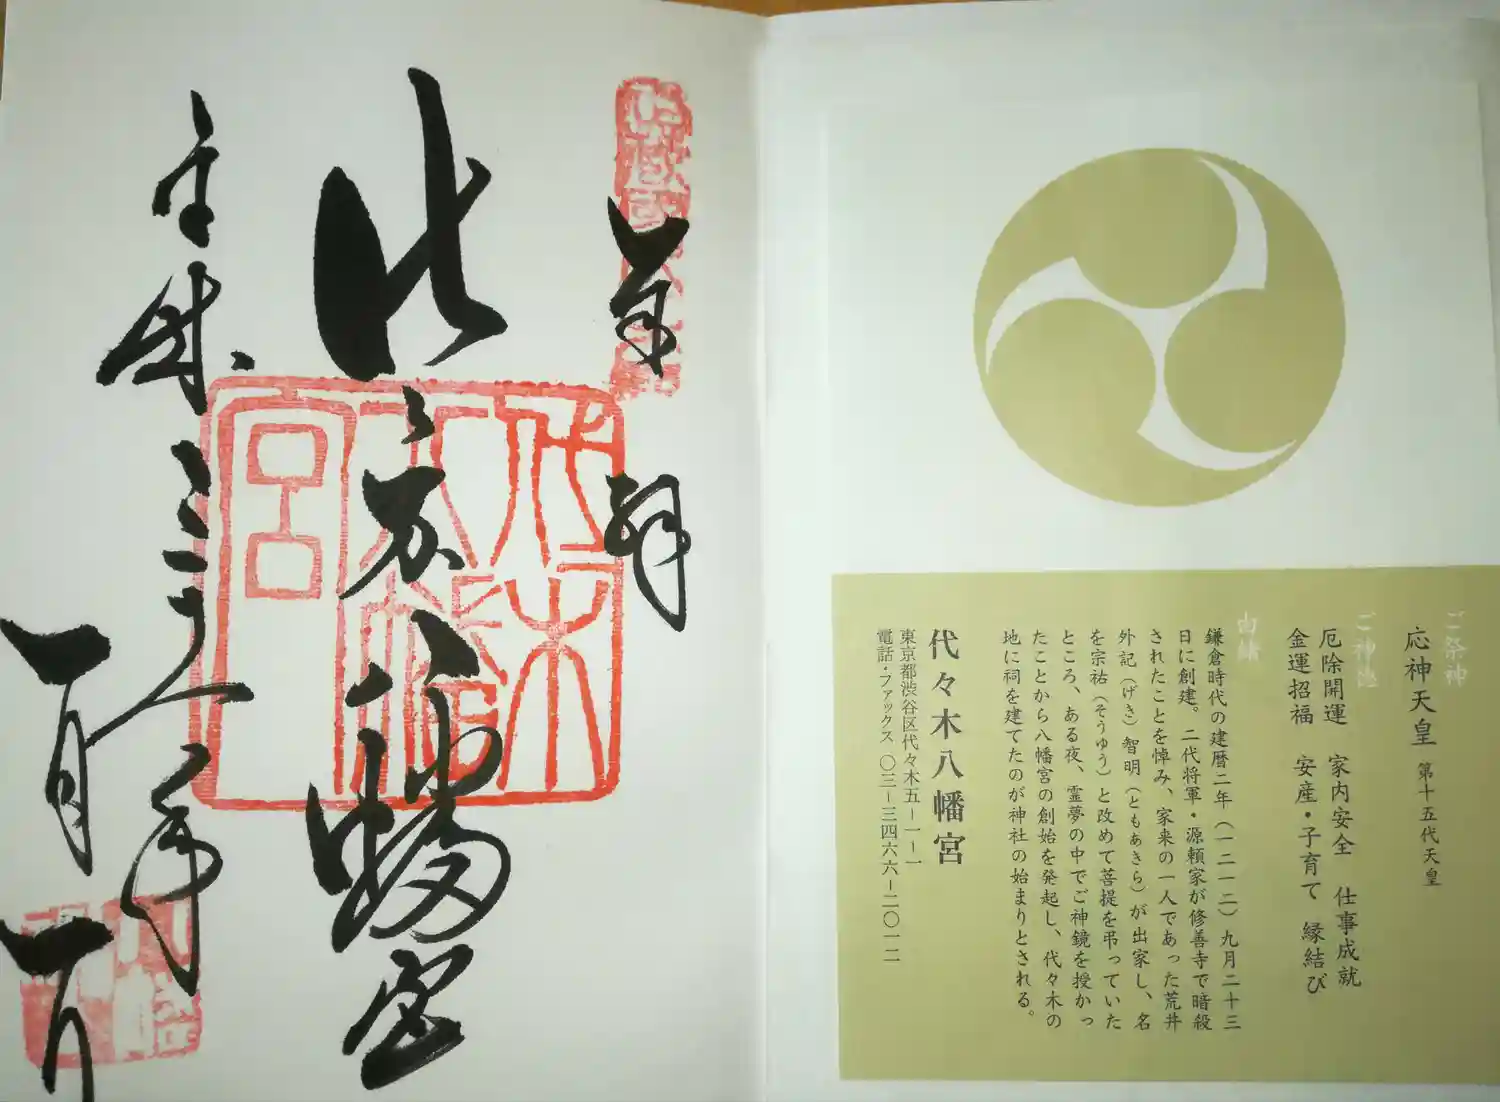 ご祭神
応神天皇 第十五代天皇
ご神徳
厄除開運 家内安全 仕事成就
金運招福 安産・子育て 縁結び
由緒
鎌倉時代の建暦二年（一二一二）九月二十三
日に創建。二代将軍・源頼家が修善寺で暗殺
されたことを悼み、家来の一人であった荒井
外記（げき）智明（ともあきら）が出家し、名
を宗祐（そうゆう）と改めて菩提を弔っていた
ところ、ある夜、霊夢の中でご神鏡を授かっ
たことから八幡宮の創始を発起し、代々木の
地に祠を建てたのが神社の始まりとされる。
代々木八幡宮
東京都渋谷区代々木五ー一ー一
電話・ファックス 〇三ー三四六六ー二〇一二
奉拝
代々木八幡宮
平成三十年
一月一日
代木
八幡
宮